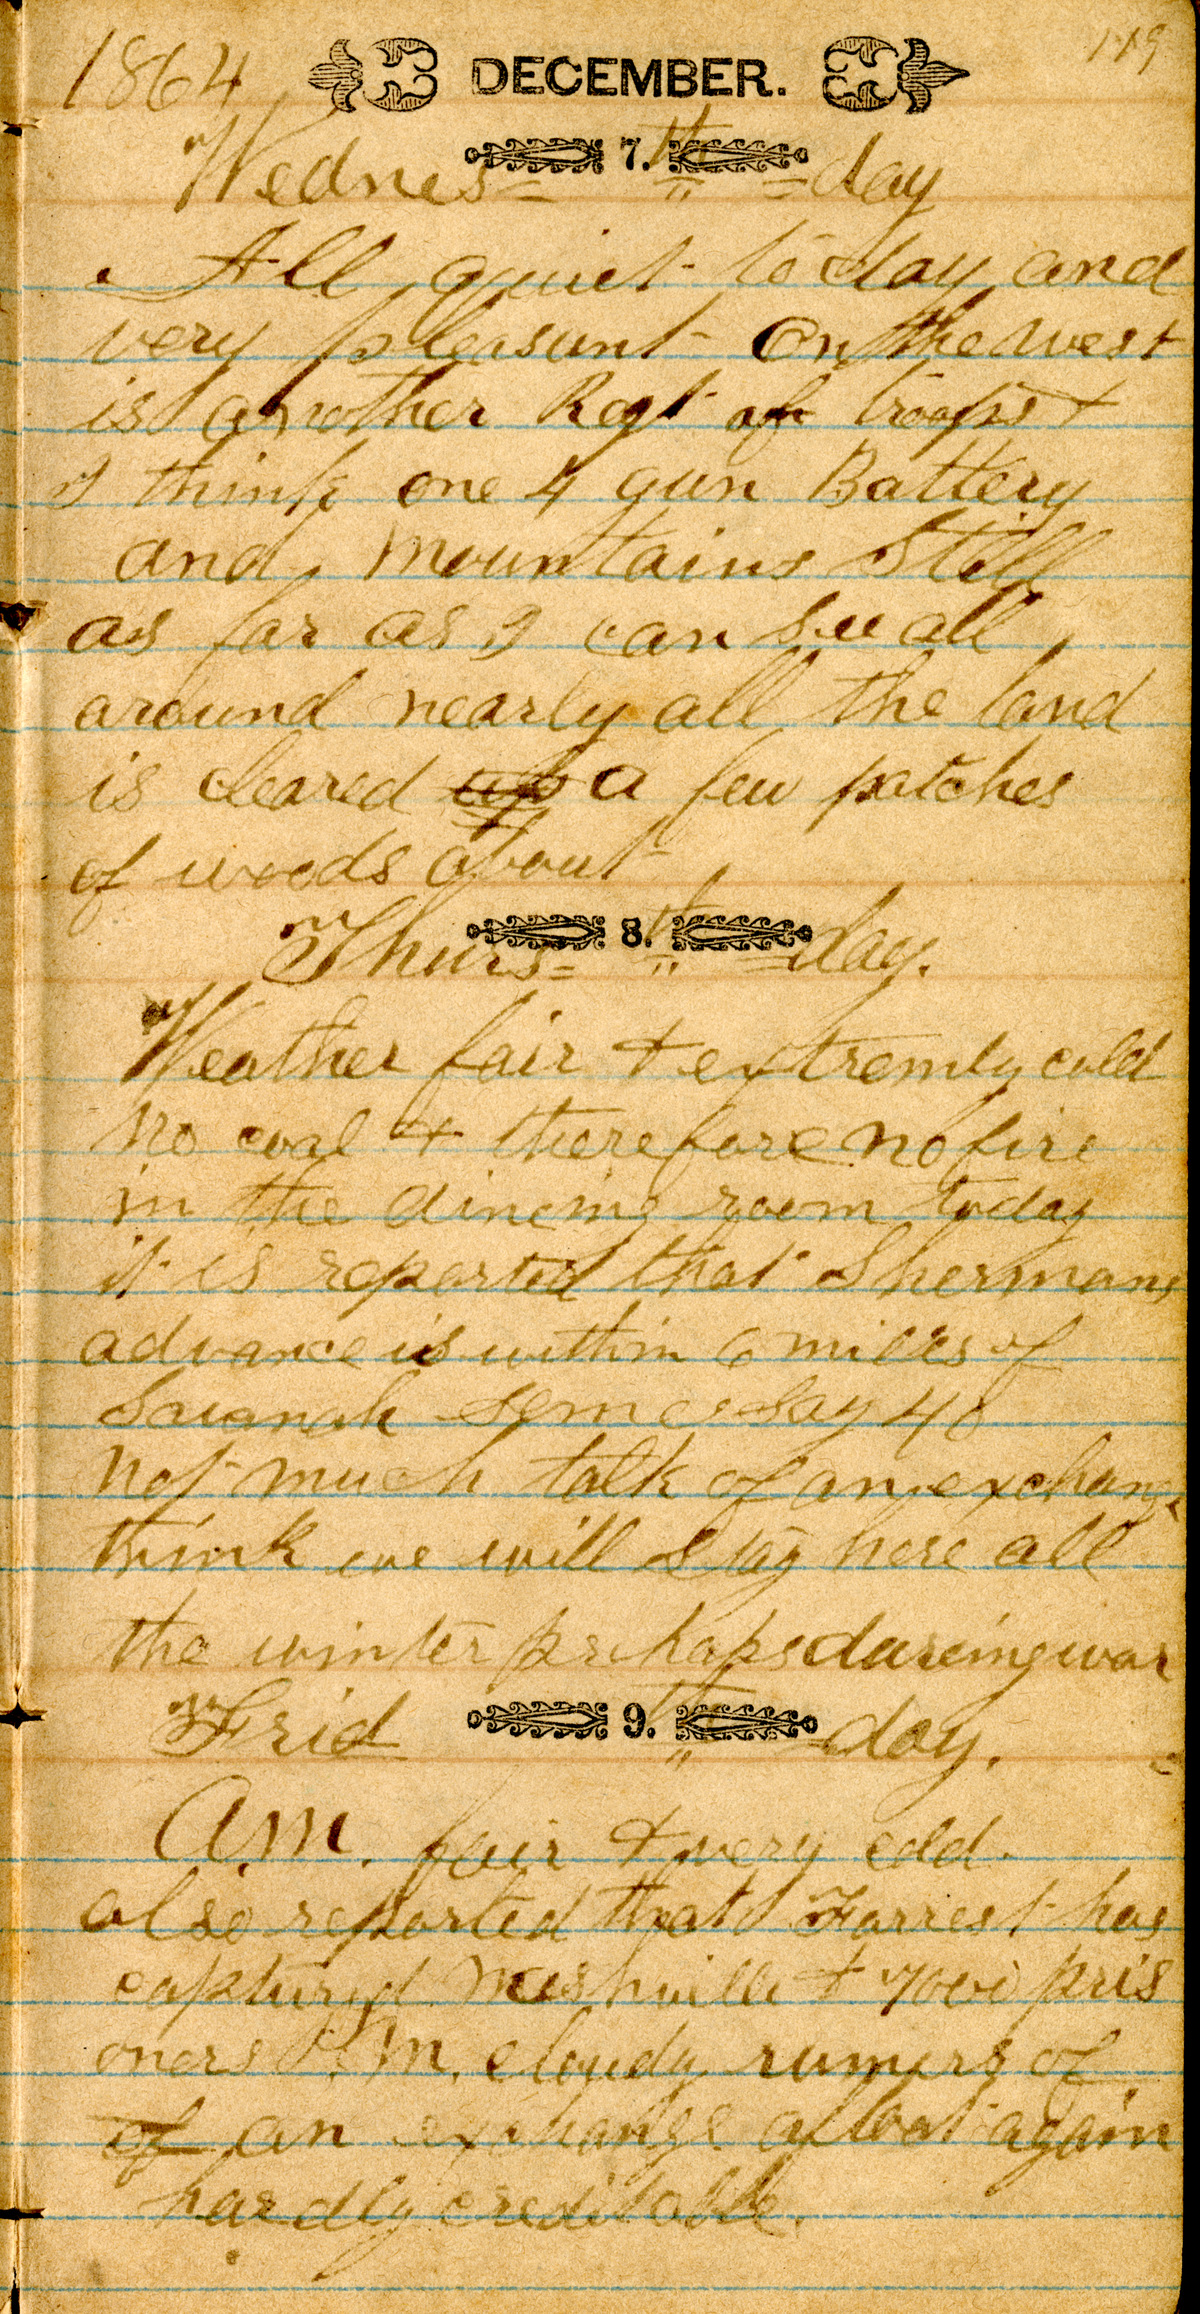 1864 DECEMBER. 119
Wednes= 7.th =day
All quiet to day and
very pleasant On the west
is another Regt of troops +
I think one 4 gun Battery
and mountains Still
as far as I can See all
around nearly all the land
is cleared up a few patches
of woods about
Thurs= 8.th =day.
Weather fair + extremly cold
No coal + therefore no fire
in the dineing room today
it is reported that Shermans
advance is within 6 miles of
Savanah Some Say 40
not much talk of an exchange
think we will stay here all
the winter perhaps dureing war
Frid 9.th =day.
A.M. fair + very cold.
also reported that Forrest has
captured Nashville + 7000 pris
oners P.M. cloudy rumers of
of an exchange afloat again
hardly creditable.